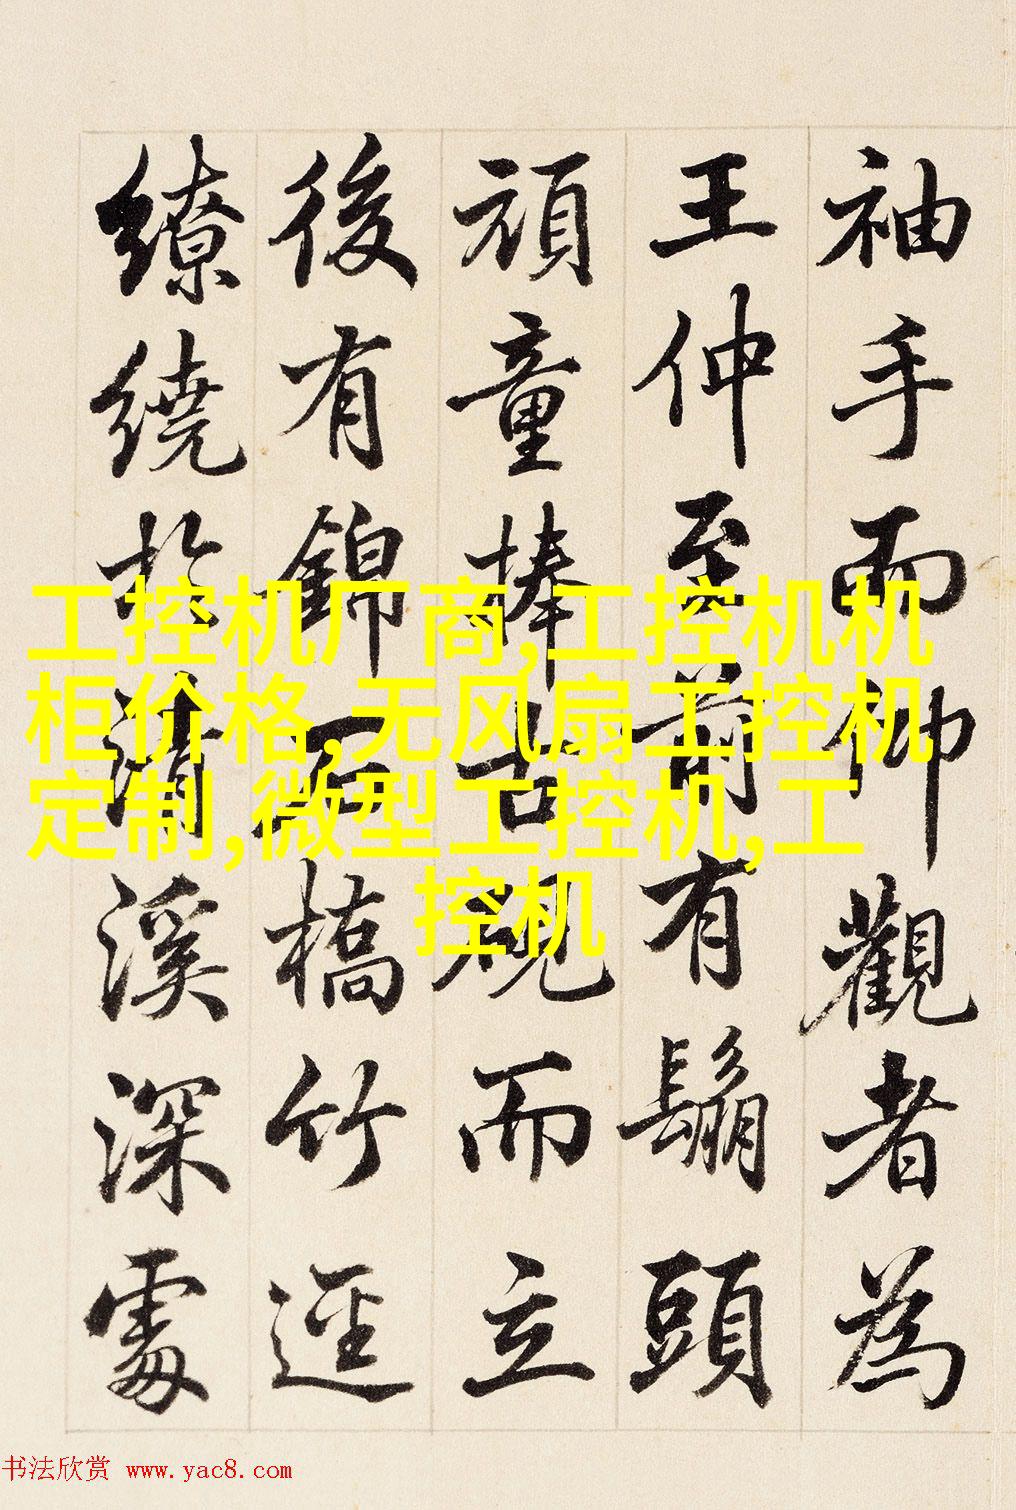 袖手而仰觀者為
王仲至前有鬅頭
頑童捧古硯而立
後有錦石橋竹逕
繚繞於清溪深處
工控机厂商,工控机机
柜价格,无风扇工控机
定制,微型工控机,工
控机
书法欣赏 www.yac8.com